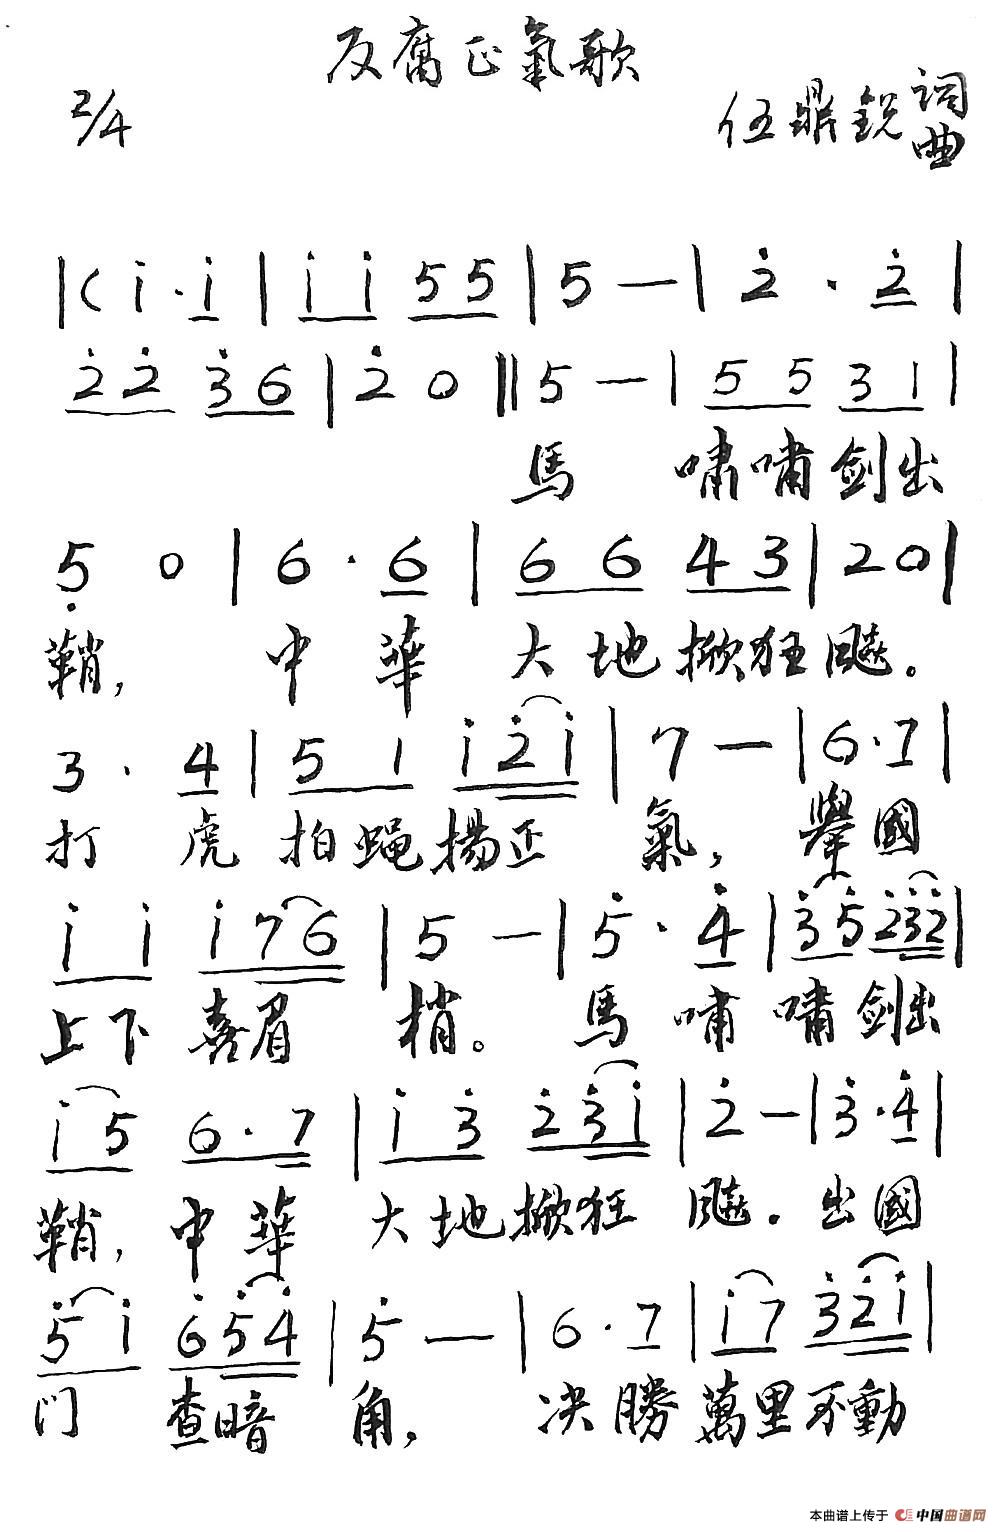 反腐正氣歌
2/4
伍鼎銳 詞曲
|( i · i | i i 5 5 | 5 — | 2 · 2 |
2 2 3 6 | 2 0 || 5 — | 5 5 3 1 |
馬 嘯嘯剑出
5 0 | 6 · 6 | 6 6 4 3 | 2 0 |
鞘, 中華大地掀狂飚。
3 · 4 | 5 1 i 2 i | 7 — | 6 · 7 |
打虎拍蝇揚正氣, 舉國
i i i 7 6 | 5 — | 5 · 4 | 3 5 2 3 2 |
上下喜眉梢。馬嘯嘯剑出
i 5 6 · 7 | i 3 2 3 i | 2 — | 3 · 4 |
鞘, 中華大地掀狂飚. 出國
5 i 6 5 4 | 5 — | 6 · 7 | i 7 3 2 i |
门查暗角, 决勝萬里不動
本曲谱上传于 中国曲谱网